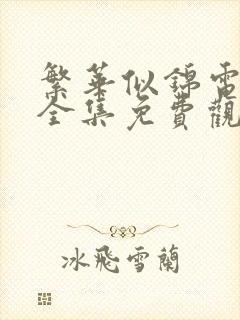 繁華似錦電
全集免費觀
冰飛雪蘭